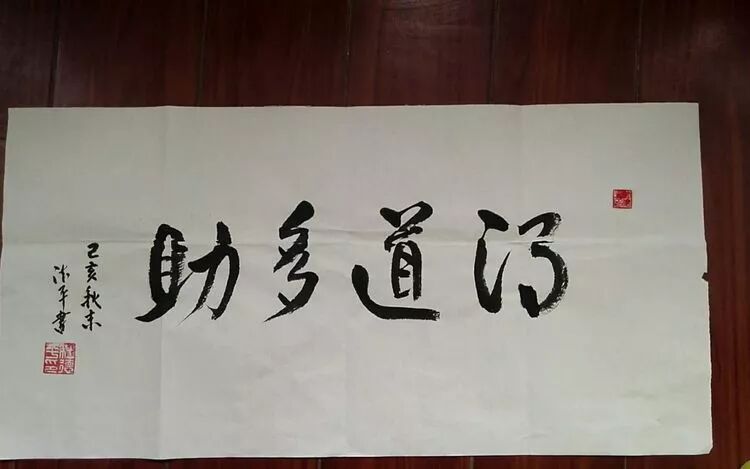 得道多助
己亥秋末
平書